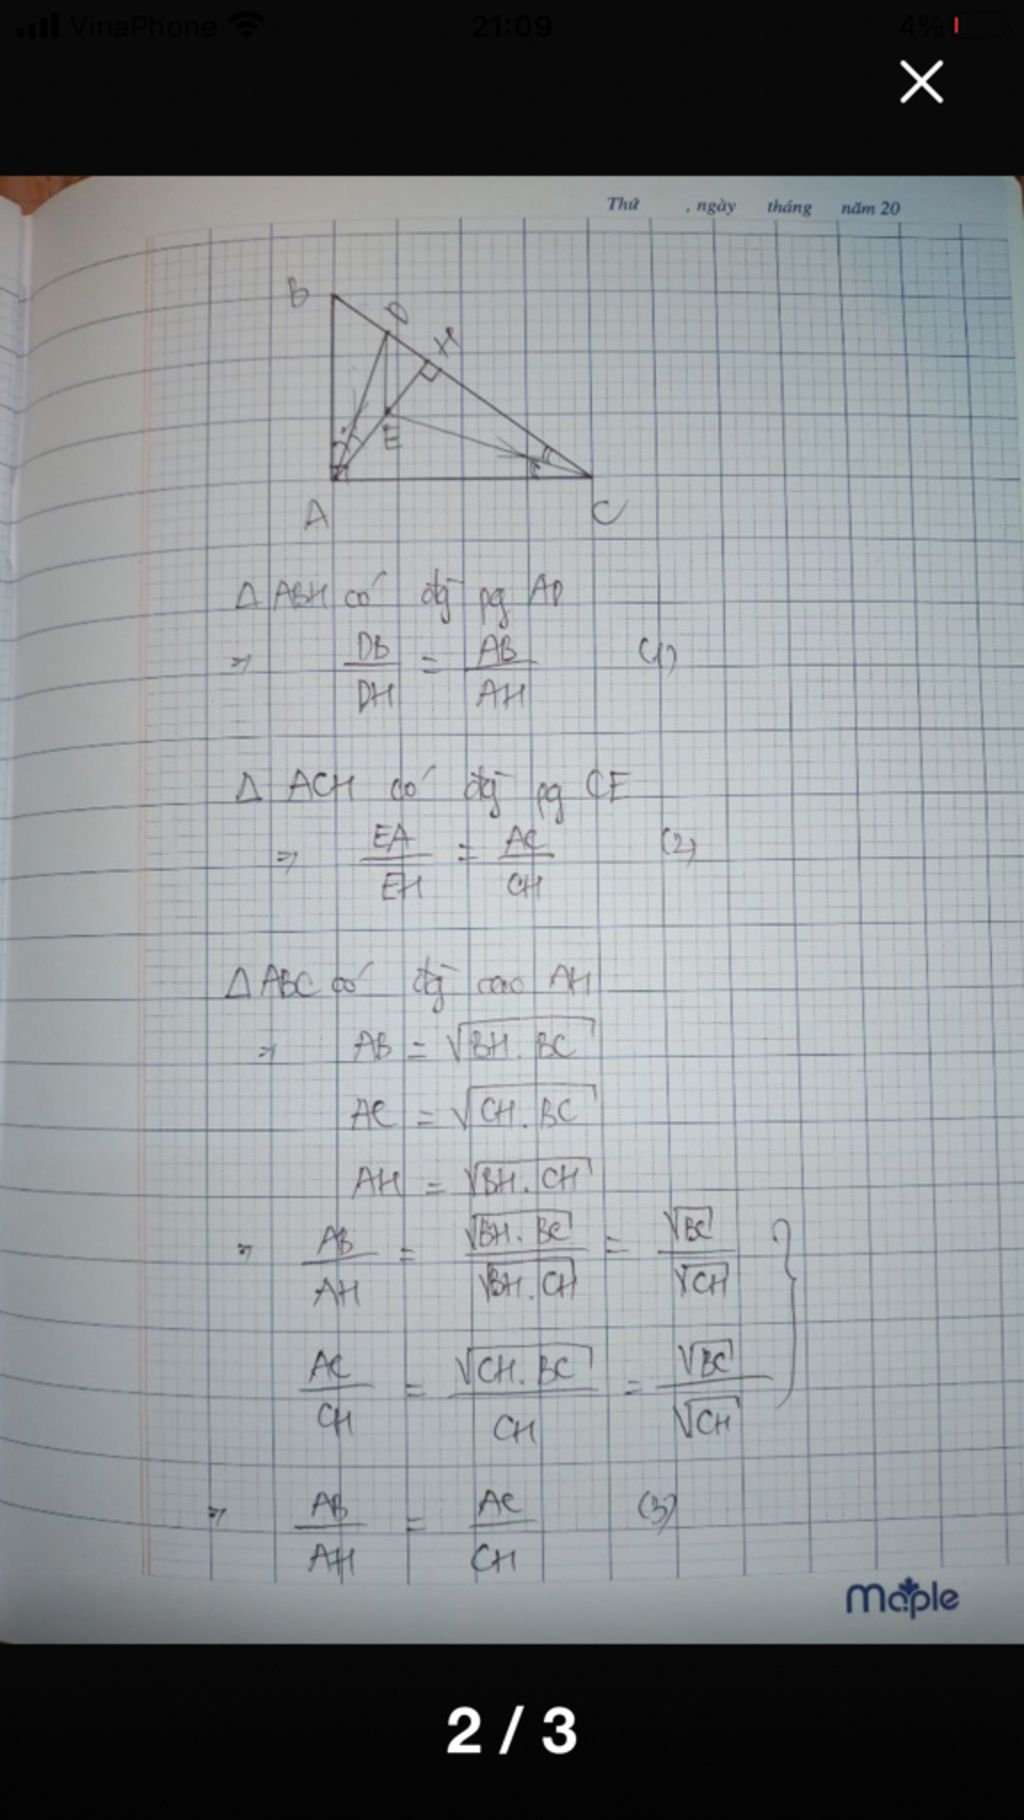 VinaPhone 21:09 4%
Thứ , ngày tháng năm 20
B
D
H
E
A
C
Δ ABH có đg pg AD
⇒ DB/DH = AB/AH (1)
Δ ACH có đg pg CE
⇒ EA/EH = AC/CH (2)
Δ ABC có đg cao AH
⇒ AB = √BH . BC
AC = √CH . BC
AH = √BH . CH
⇒ AB/AH = √BH . BC/√BH . CH = √BC/√CH
AC/CH = √CH . BC/CH = √BC/√CH
⇒ AB/AH = AC/CH (3)
Maple
2 / 3